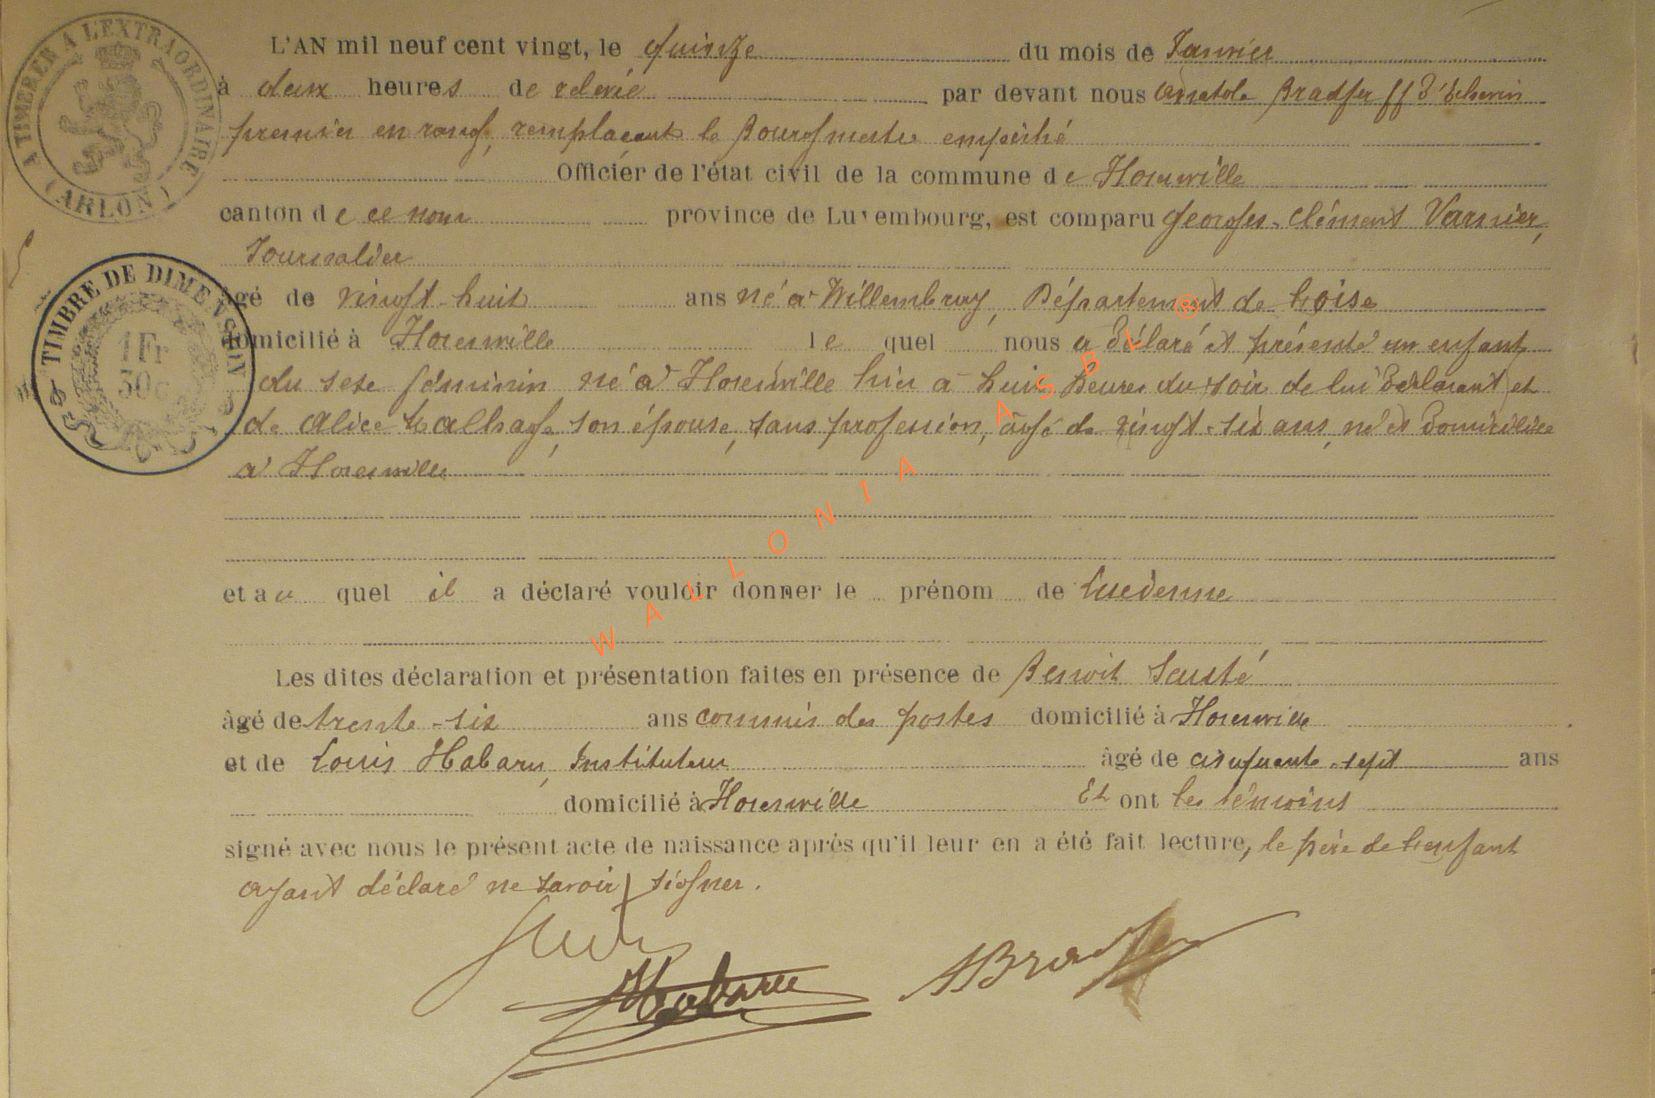 A TIMBRER A L'EXTRAORDINAIRE
(ARLON)
TIMBRE DE DIMENSION
1Fr
50c
L'AN mil neuf cent vingt, le quinze du mois de Janvier
à deux heures de relevée par devant nous Anatole Bradfer ff d'Echevin
premier en rang, remplaçant le Bourgmestre empêché
Officier de l'état civil de la commune de Florenville
canton de ce nom province de Luxembourg, est comparu Georges-Clément Varnier,
Journalier
âgé de vingt-huit ans né à Willembray, Département de l'oise
domicilié à Florenville le quel nous a déclaré et présenté un enfant
du sexe féminin né à Florenville hier à huit heures du soir de lui Déclarant et
de Alice son épouse, sans profession, âgé de vingt-six ans, né et Domiciliée
à Florenville
et au quel il a déclaré vouloir donner le prénom de Lucienne
Les dites déclaration et présentation faites en présence de Benoit
âgé de trente-six ans commis des postes domicilié à Florenville
et de Louis Habaru, Instituteur âgé de cinquante-sept ans
domicilié à Florenville Et ont les témoins
signé avec nous le présent acte de naissance après qu'il leur en a été fait lecture, le père de l'enfant
ayant déclaré ne savoir signer.
Habaru
ABradfer
WALLONIA ASBL ®